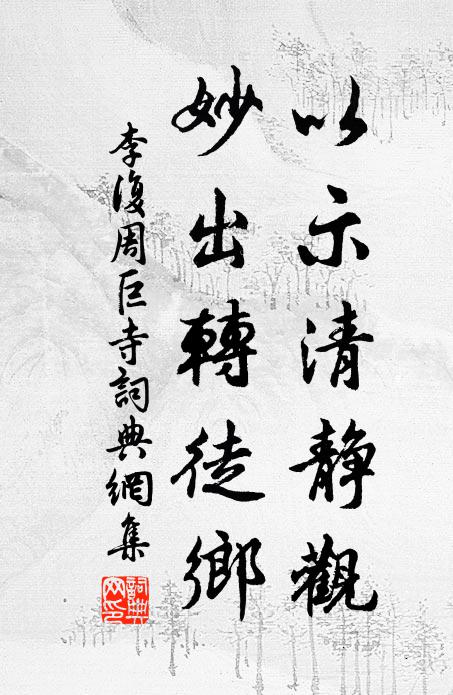 以示清静觀
妙出轉徒鄉
李復周巨寺詞典網集
詞典網印